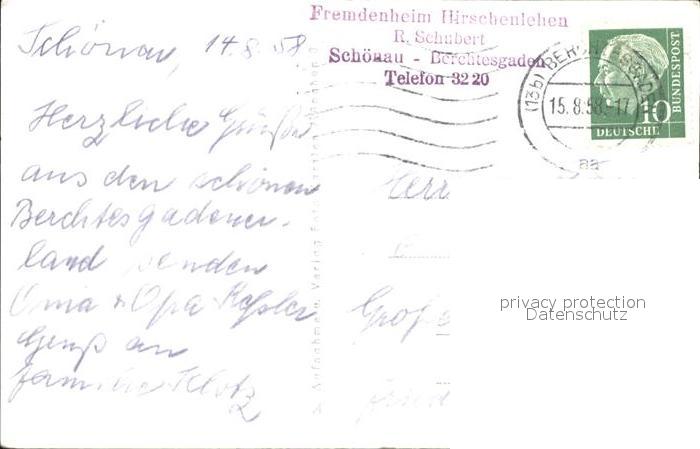 Fremdenheim Hirschenlehen
R. Schubert
Schönau - Berchtesgaden
Telefon 32 20
Schönau, 14.8.58
Herzliche Grüße
aus den schönen
Berchtesgadener-
land senden
Oma + Opa
Gruß an
Familie Klotz
Herr
(13b) BERCH
15.8.58.-17
aa
10
DEUTSCHE
BUNDESPOST
privacy protection
Datenschutz